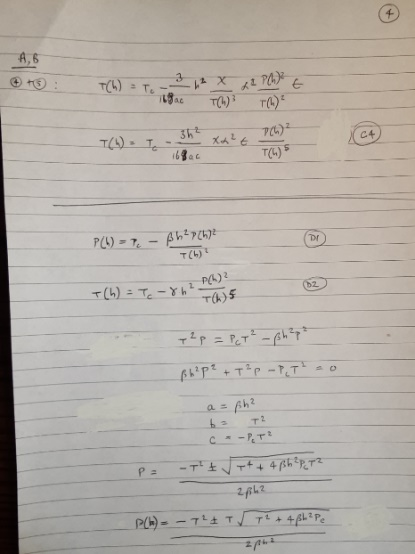 4
A,B
④ + ⑤ : T(h) = T_c - 3/(16 ac) h² X/T(h)³ α² P(h)²/T(h)² ε
T(h) = T_c - 3h²/(16 ac) X α² ε P(h)²/T(h)⁵ C4
P(h) = P_c - βh²P(h)²/T(h)² D1
T(h) = T_c - γh² P(h)²/T(h)⁵ D2
T²P = P_cT² - βh²P²
βh²P² + T²P - P_cT² = 0
a = βh²
b = T²
c = -P_cT²
P = (-T² ± √(T⁴ + 4βh²P_cT²))/(2βh²)
P(h) = (-T² ± T√(T² + 4βh²P_c))/(2βh²)